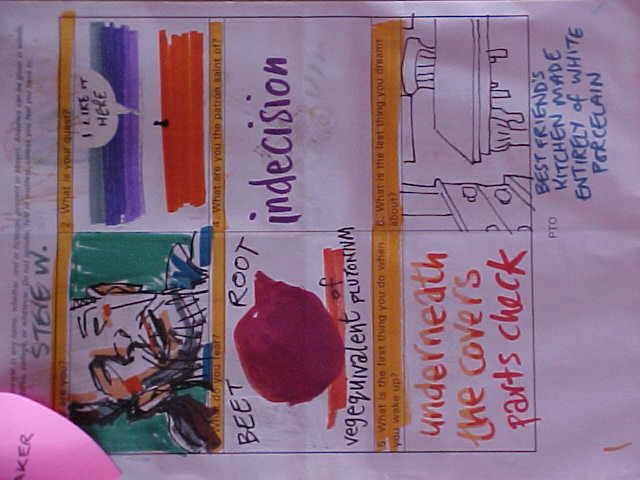 STEVE W.
are you?
2. What is your quest?
I LIKE IT
HERE
do you fear?
BEET ROOT
vegequivalent of
PLUTONIUM
4. What are you the patron saint of?
indecision
5. What is the first thing you do when
you wake up?
underneath
the covers
parts check
6. What is the last thing you dreamt
about?
BEST FRIEND'S
KITCHEN MADE
ENTIRELY OF WHITE
PORCELAIN
PTO
AKER